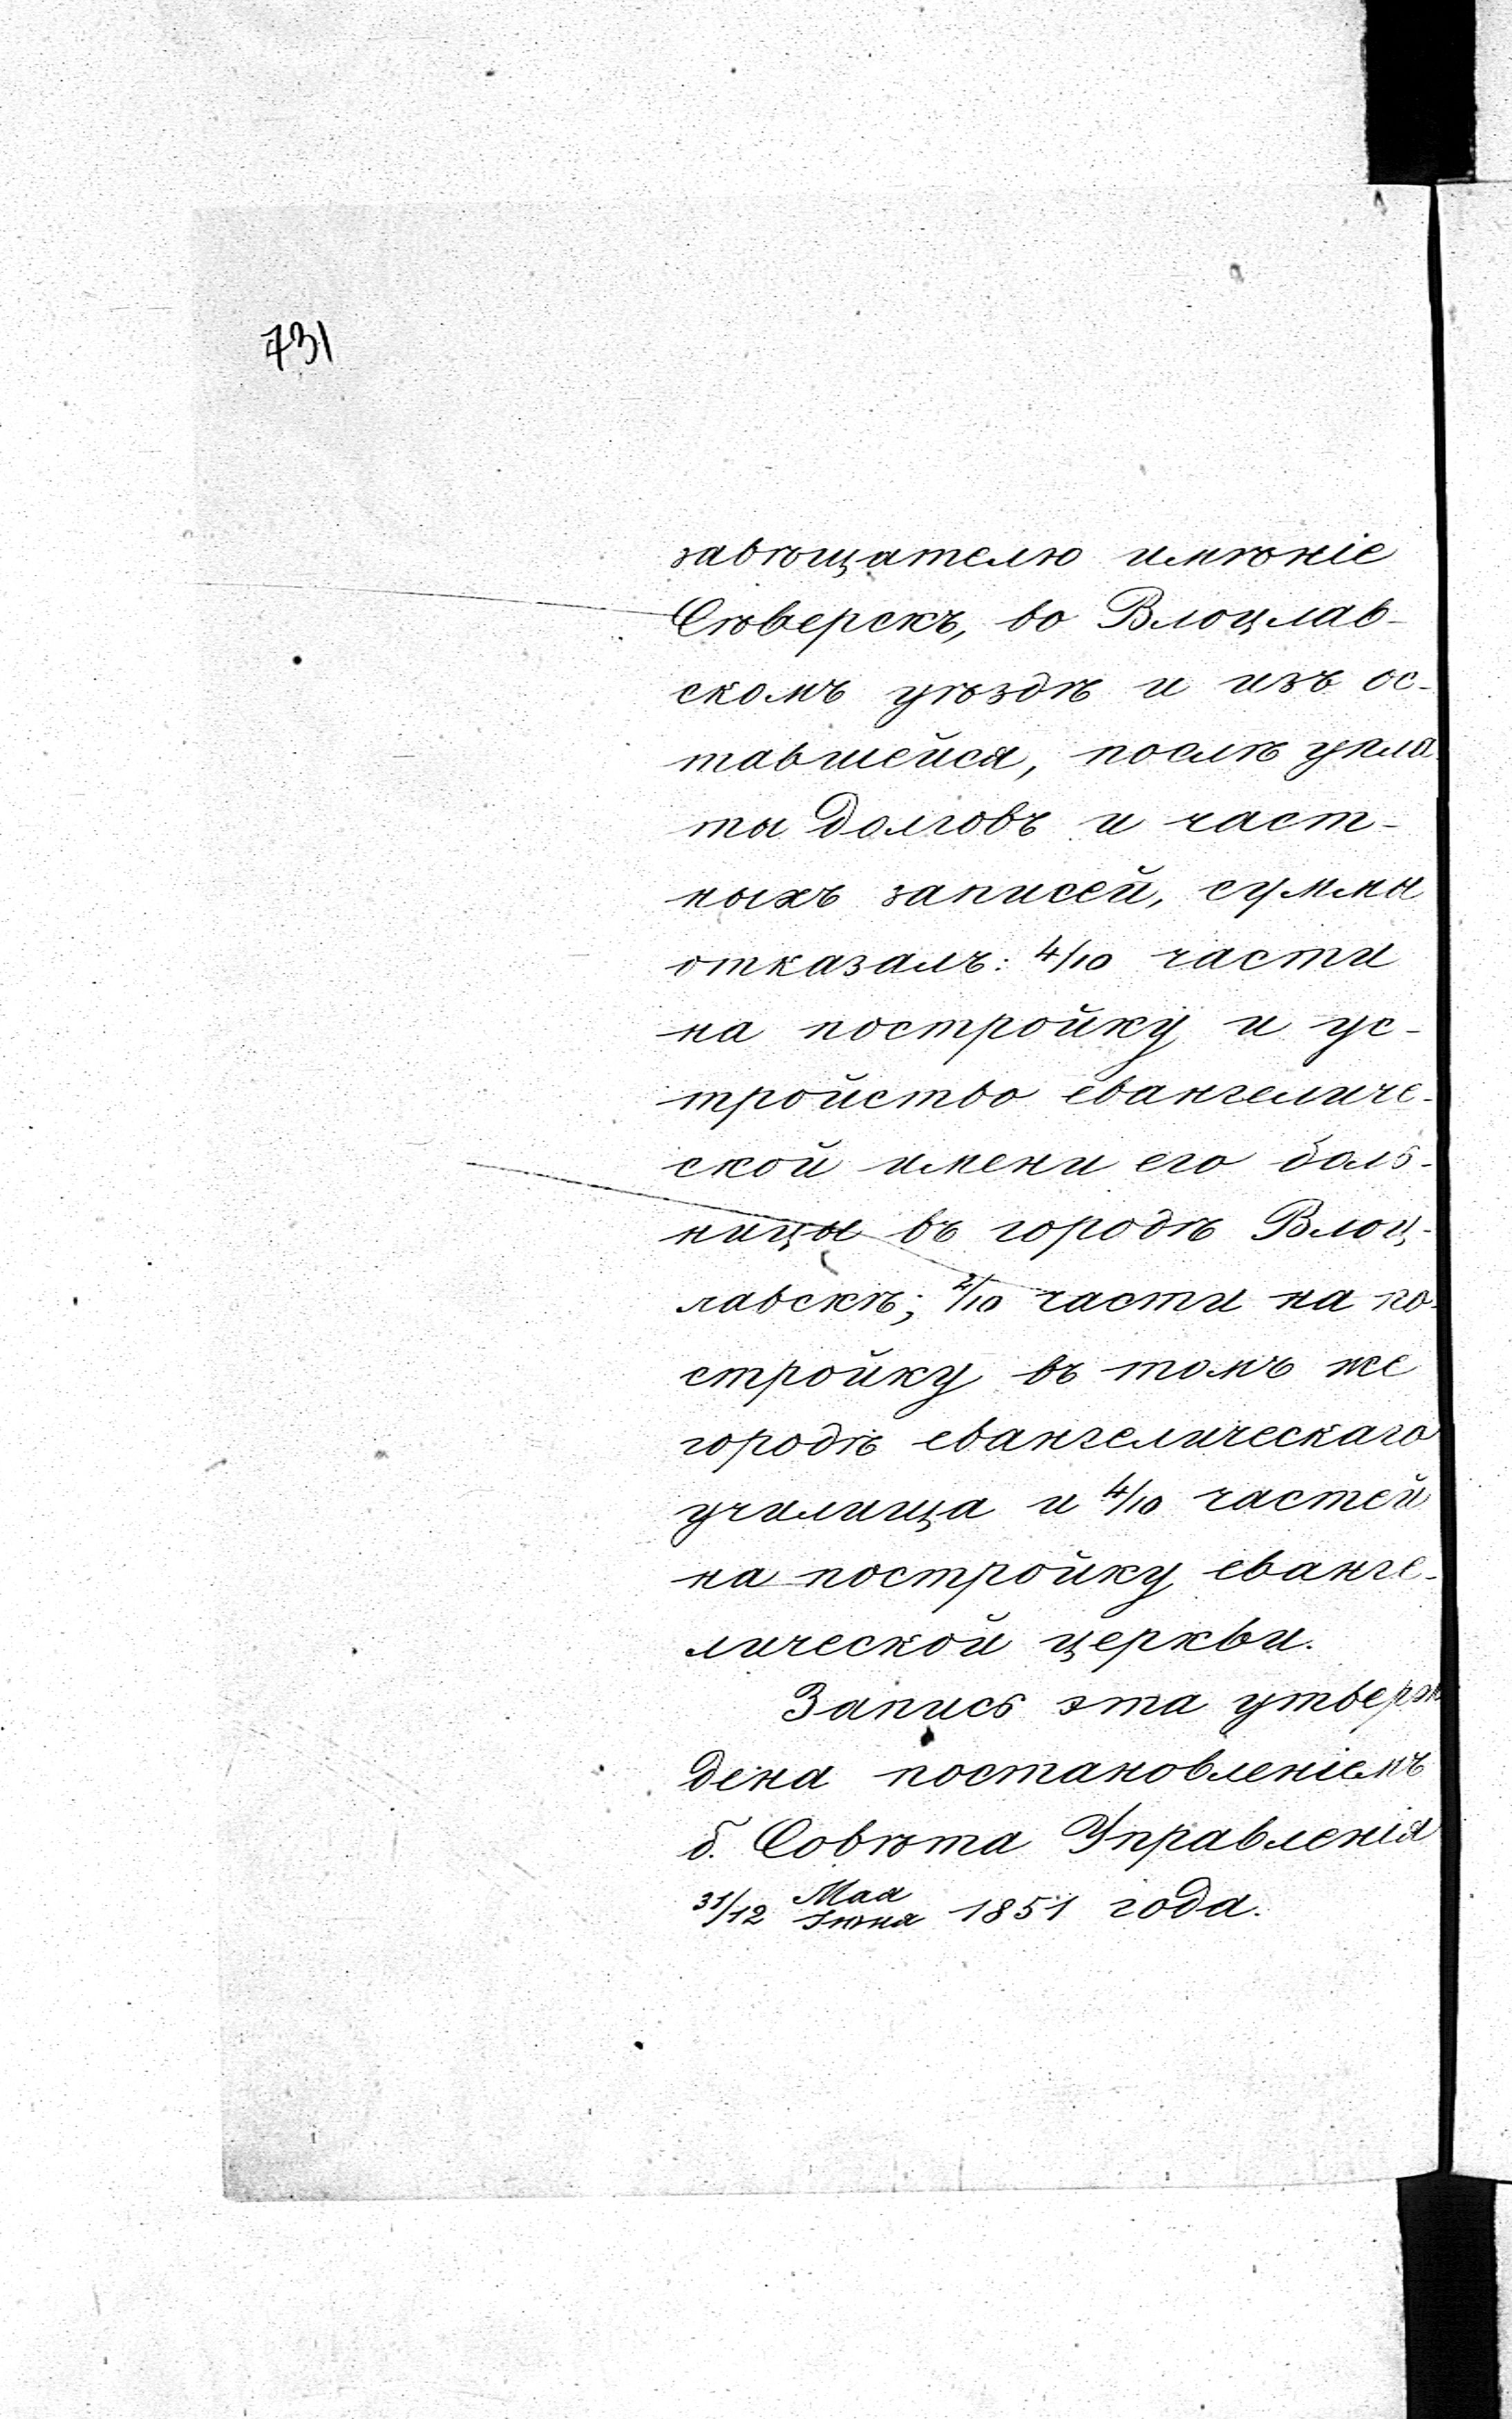 731
завѣщателю имѣніе
Сѣверскъ, во Влоцлав-
скомъ уѣздѣ и изъ ос-
тавшейся, послѣ упла-
ты долговъ и част-
ныхъ записей, суммы
отказалъ: 4/10 части
на постройку и ус-
тройство евангеличе-
ской имени его боль-
ницы въ городѣ Влоц-
лавскѣ; 2/10 части на по-
стройку въ томъ же
городѣ евангелическаго
училища и 4/10 частей
на постройку еванге-
лической церкви.
Запись эта утверж
дена постановленіемъ
б. Совѣта Управленія
31/12 Мая/Іюня 1851 года.